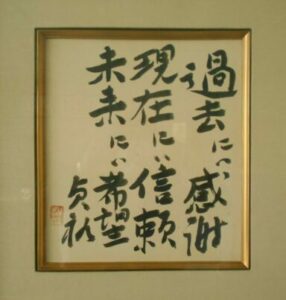 過去には感謝
現在には信頼
未来には希望
貞祐